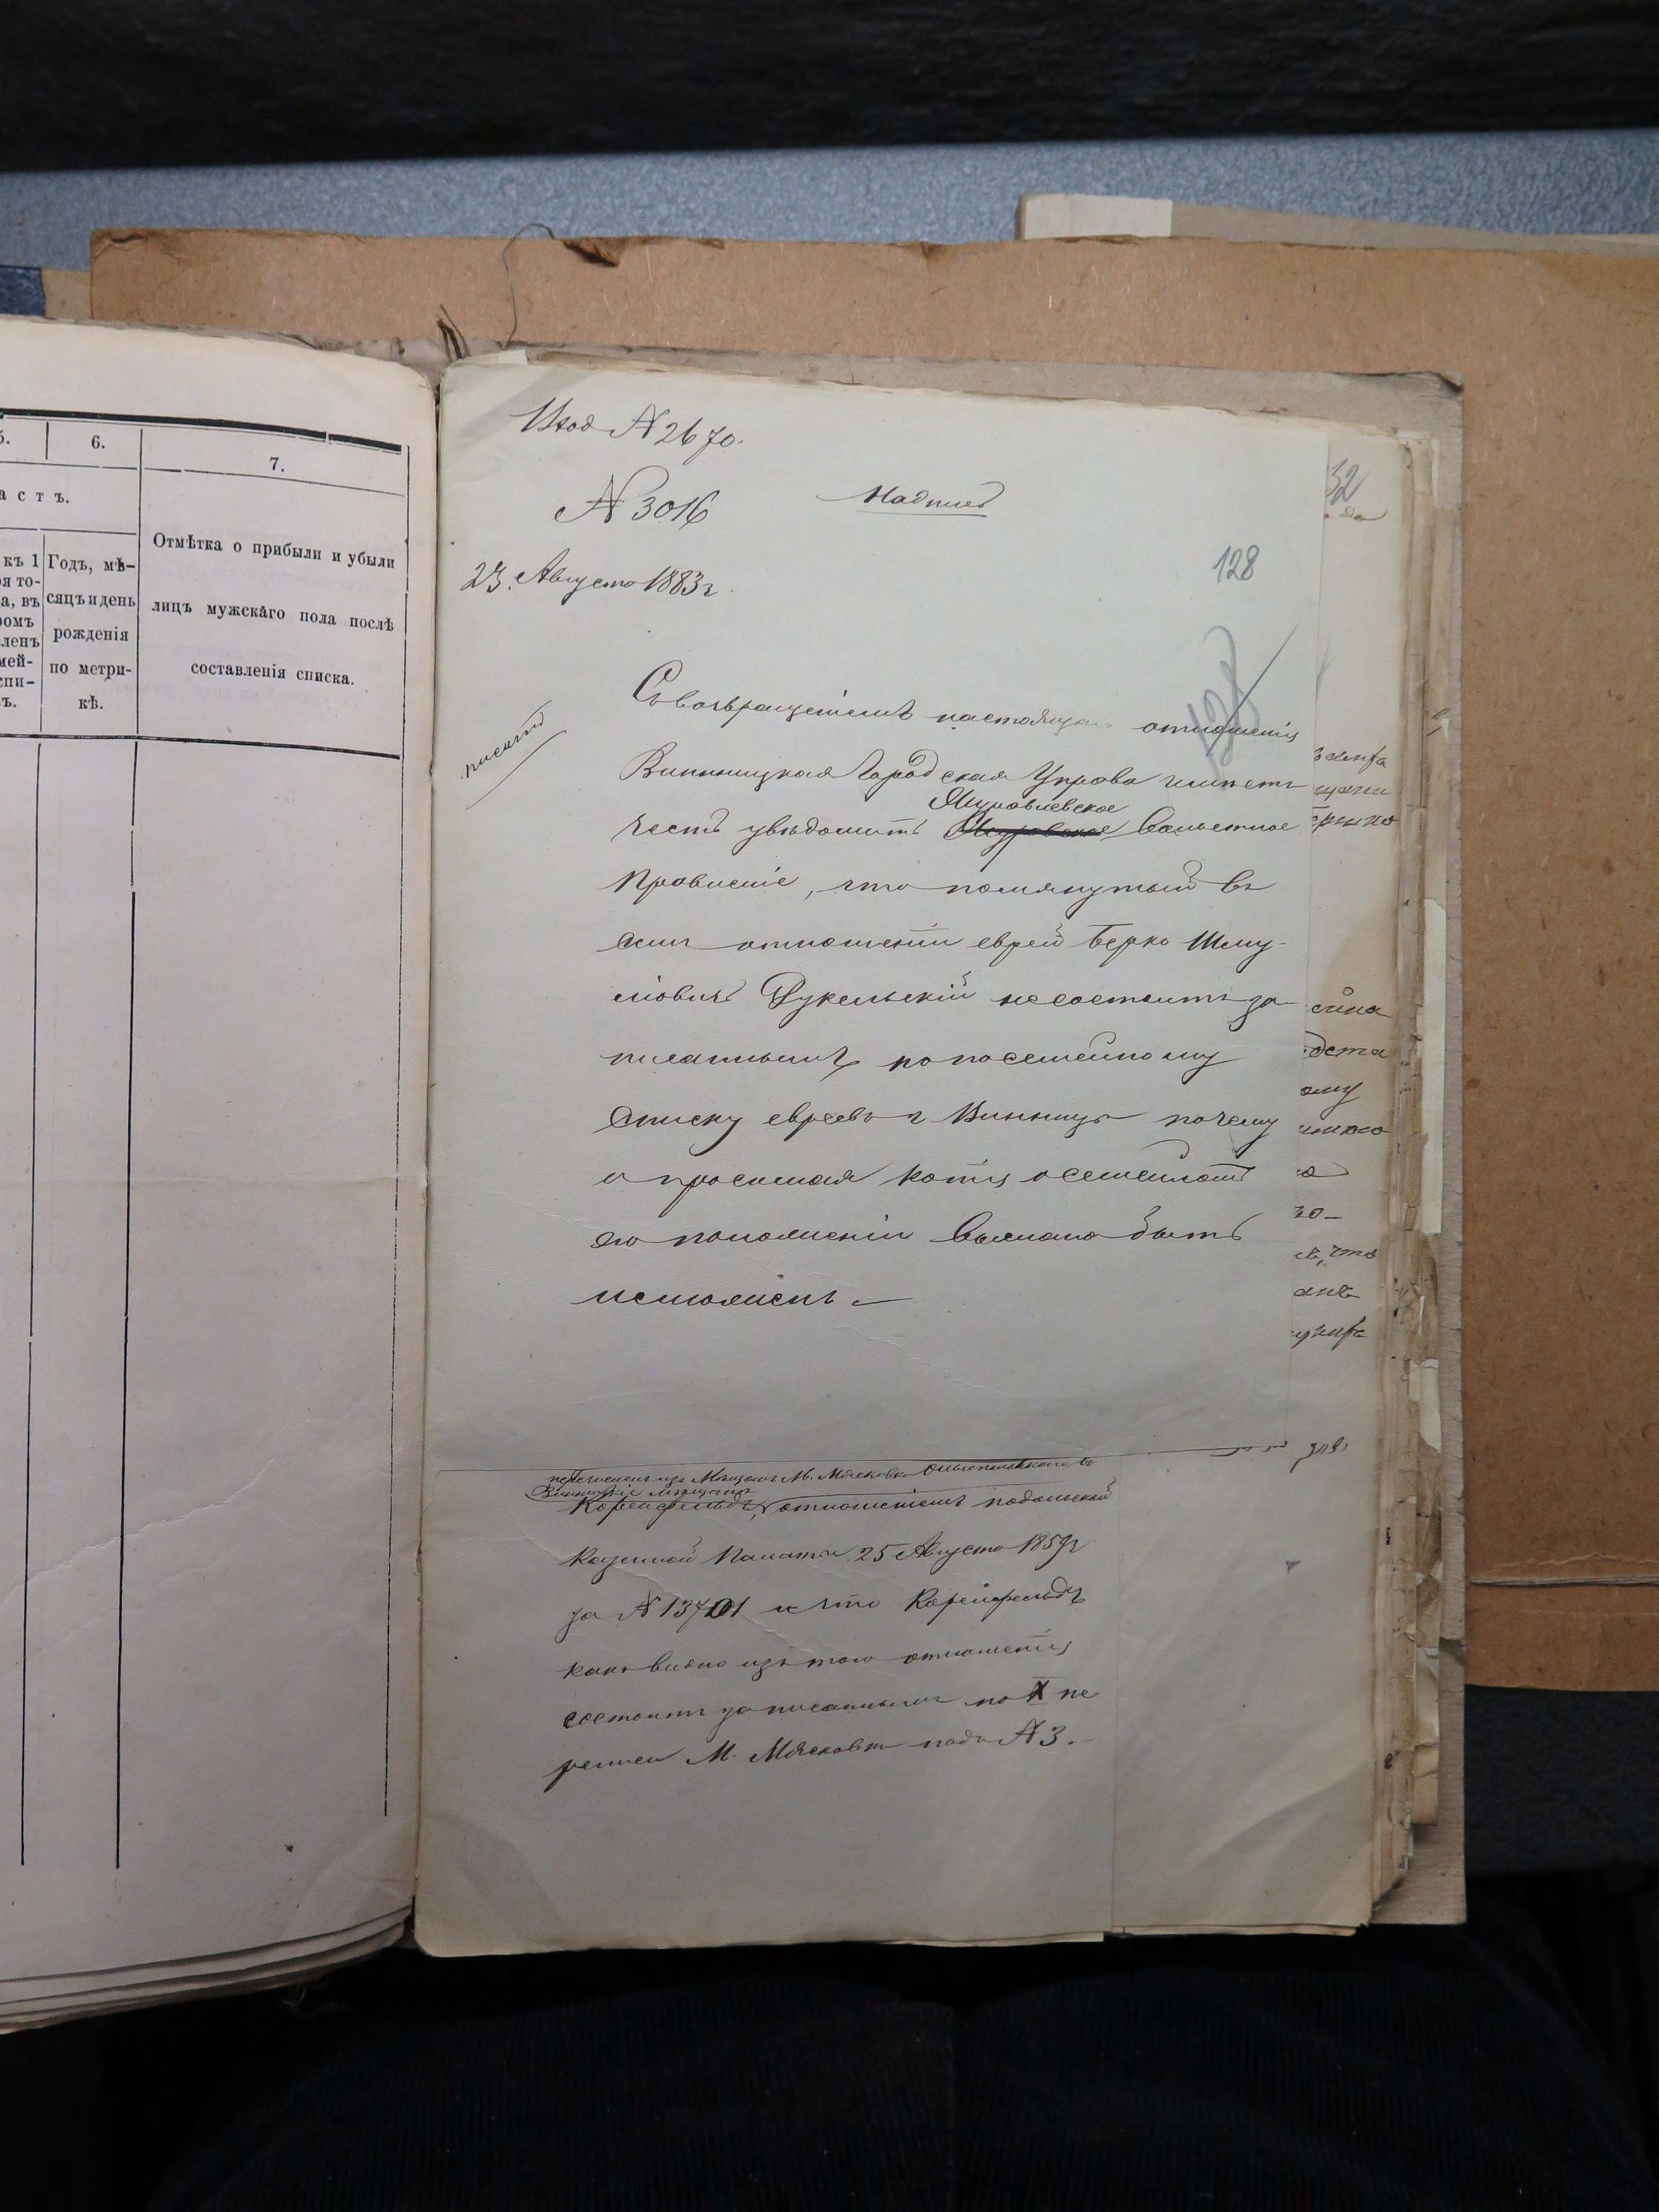 5.
6.
7.
а с т ъ.
къ 1
я то-
а, въ
ромъ
ленъ
мей-
спи-
ъ.
Годъ, мѣ-
сяцъ и день
рожденія
по метри-
кѣ.
Отмѣтка о прибыли и убыли
лицъ мужскаго пола послѣ
составленія списка.
Вход № 2670.
№ 3016
Надпись
23. Августа 1883 г.
128
Съ возвращеніемъ настоящаго отношенія
Винницкая Городская Управа имѣетъ
Муровлевское
честь увѣдомить Волостное
Правленіе, что помянутый въ
семъ отношеніи еврей Берко Шму-
ліовичъ Дукельскій не состоитъ за
писаннымъ по посемейному
списку евреевъ г Винницы почему
и просимая копія о семейномъ
его положеніи выслана быть
не можетъ.
перечисленъ изъ Мѣщанъ М. Мясковки Ольгопольскаго въ
Винницкіе Мѣщане
Корнсфельдъ, отношеніемъ подольской
Казенной Палаты 25 Августа 1859 г
за № 13701 и что Корнсфельдъ
какъ видно изъ того отношенія
состоитъ записаннымъ по X пе
реписи М. Мясковки подъ № 3.
32
ому
о
го-
ѣ, что